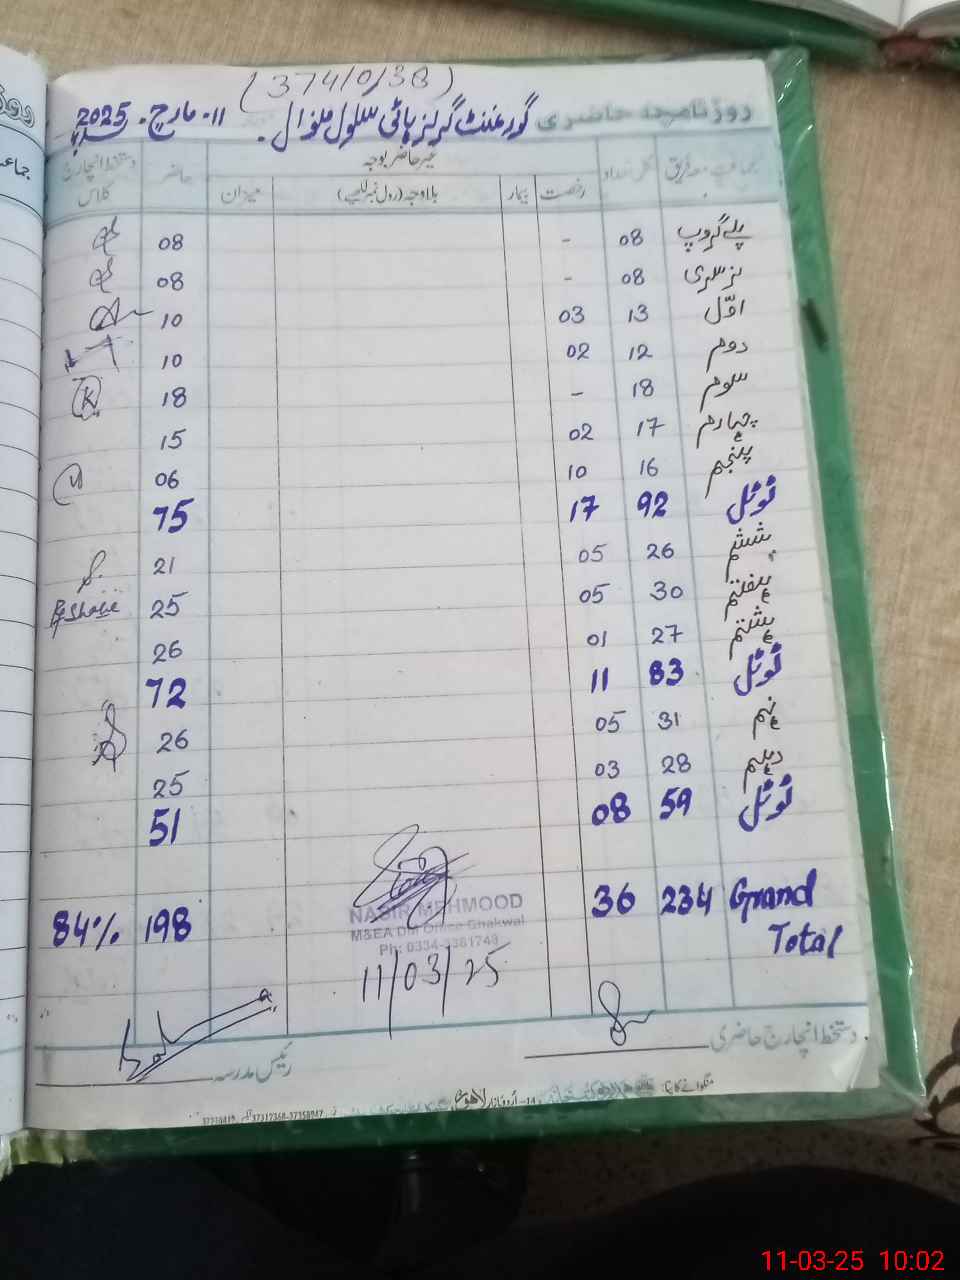 (374/0/38)
روزنامچہ حاضری گورنمنٹ گرلز ہائی سکول ملوال۔ 11۔ مارچ۔ 2025
جماعت معہ فریق کل تعداد غیر حاضر بوجہ حاضر دستخط انچارج کلاس
رخصت بیمار بلاوجہ (رول نمبر لکھیے) میزان
پلے گروپ 08 - 08
نرسری 08 - 08
اوّل 13 03 10
دوم 12 02 10
سوم 18 - 18
چہارم 17 02 15
پنجم 16 10 06
ٹوٹل 92 17 75
ششم 26 05 21
ہفتم 30 05 25
ہشتم 27 01 26
ٹوٹل 83 11 72
نہم 31 05 26
دہم 28 03 25
ٹوٹل 59 08 51
Grand Total 234 36 198 84%
NASIR MEHMOOD
M&EA DM Office Chakwal
Ph: 0334-3361749
11/03/25
دستخط انچارج حاضری
رئیس مدرسہ
11-03-25 10:02